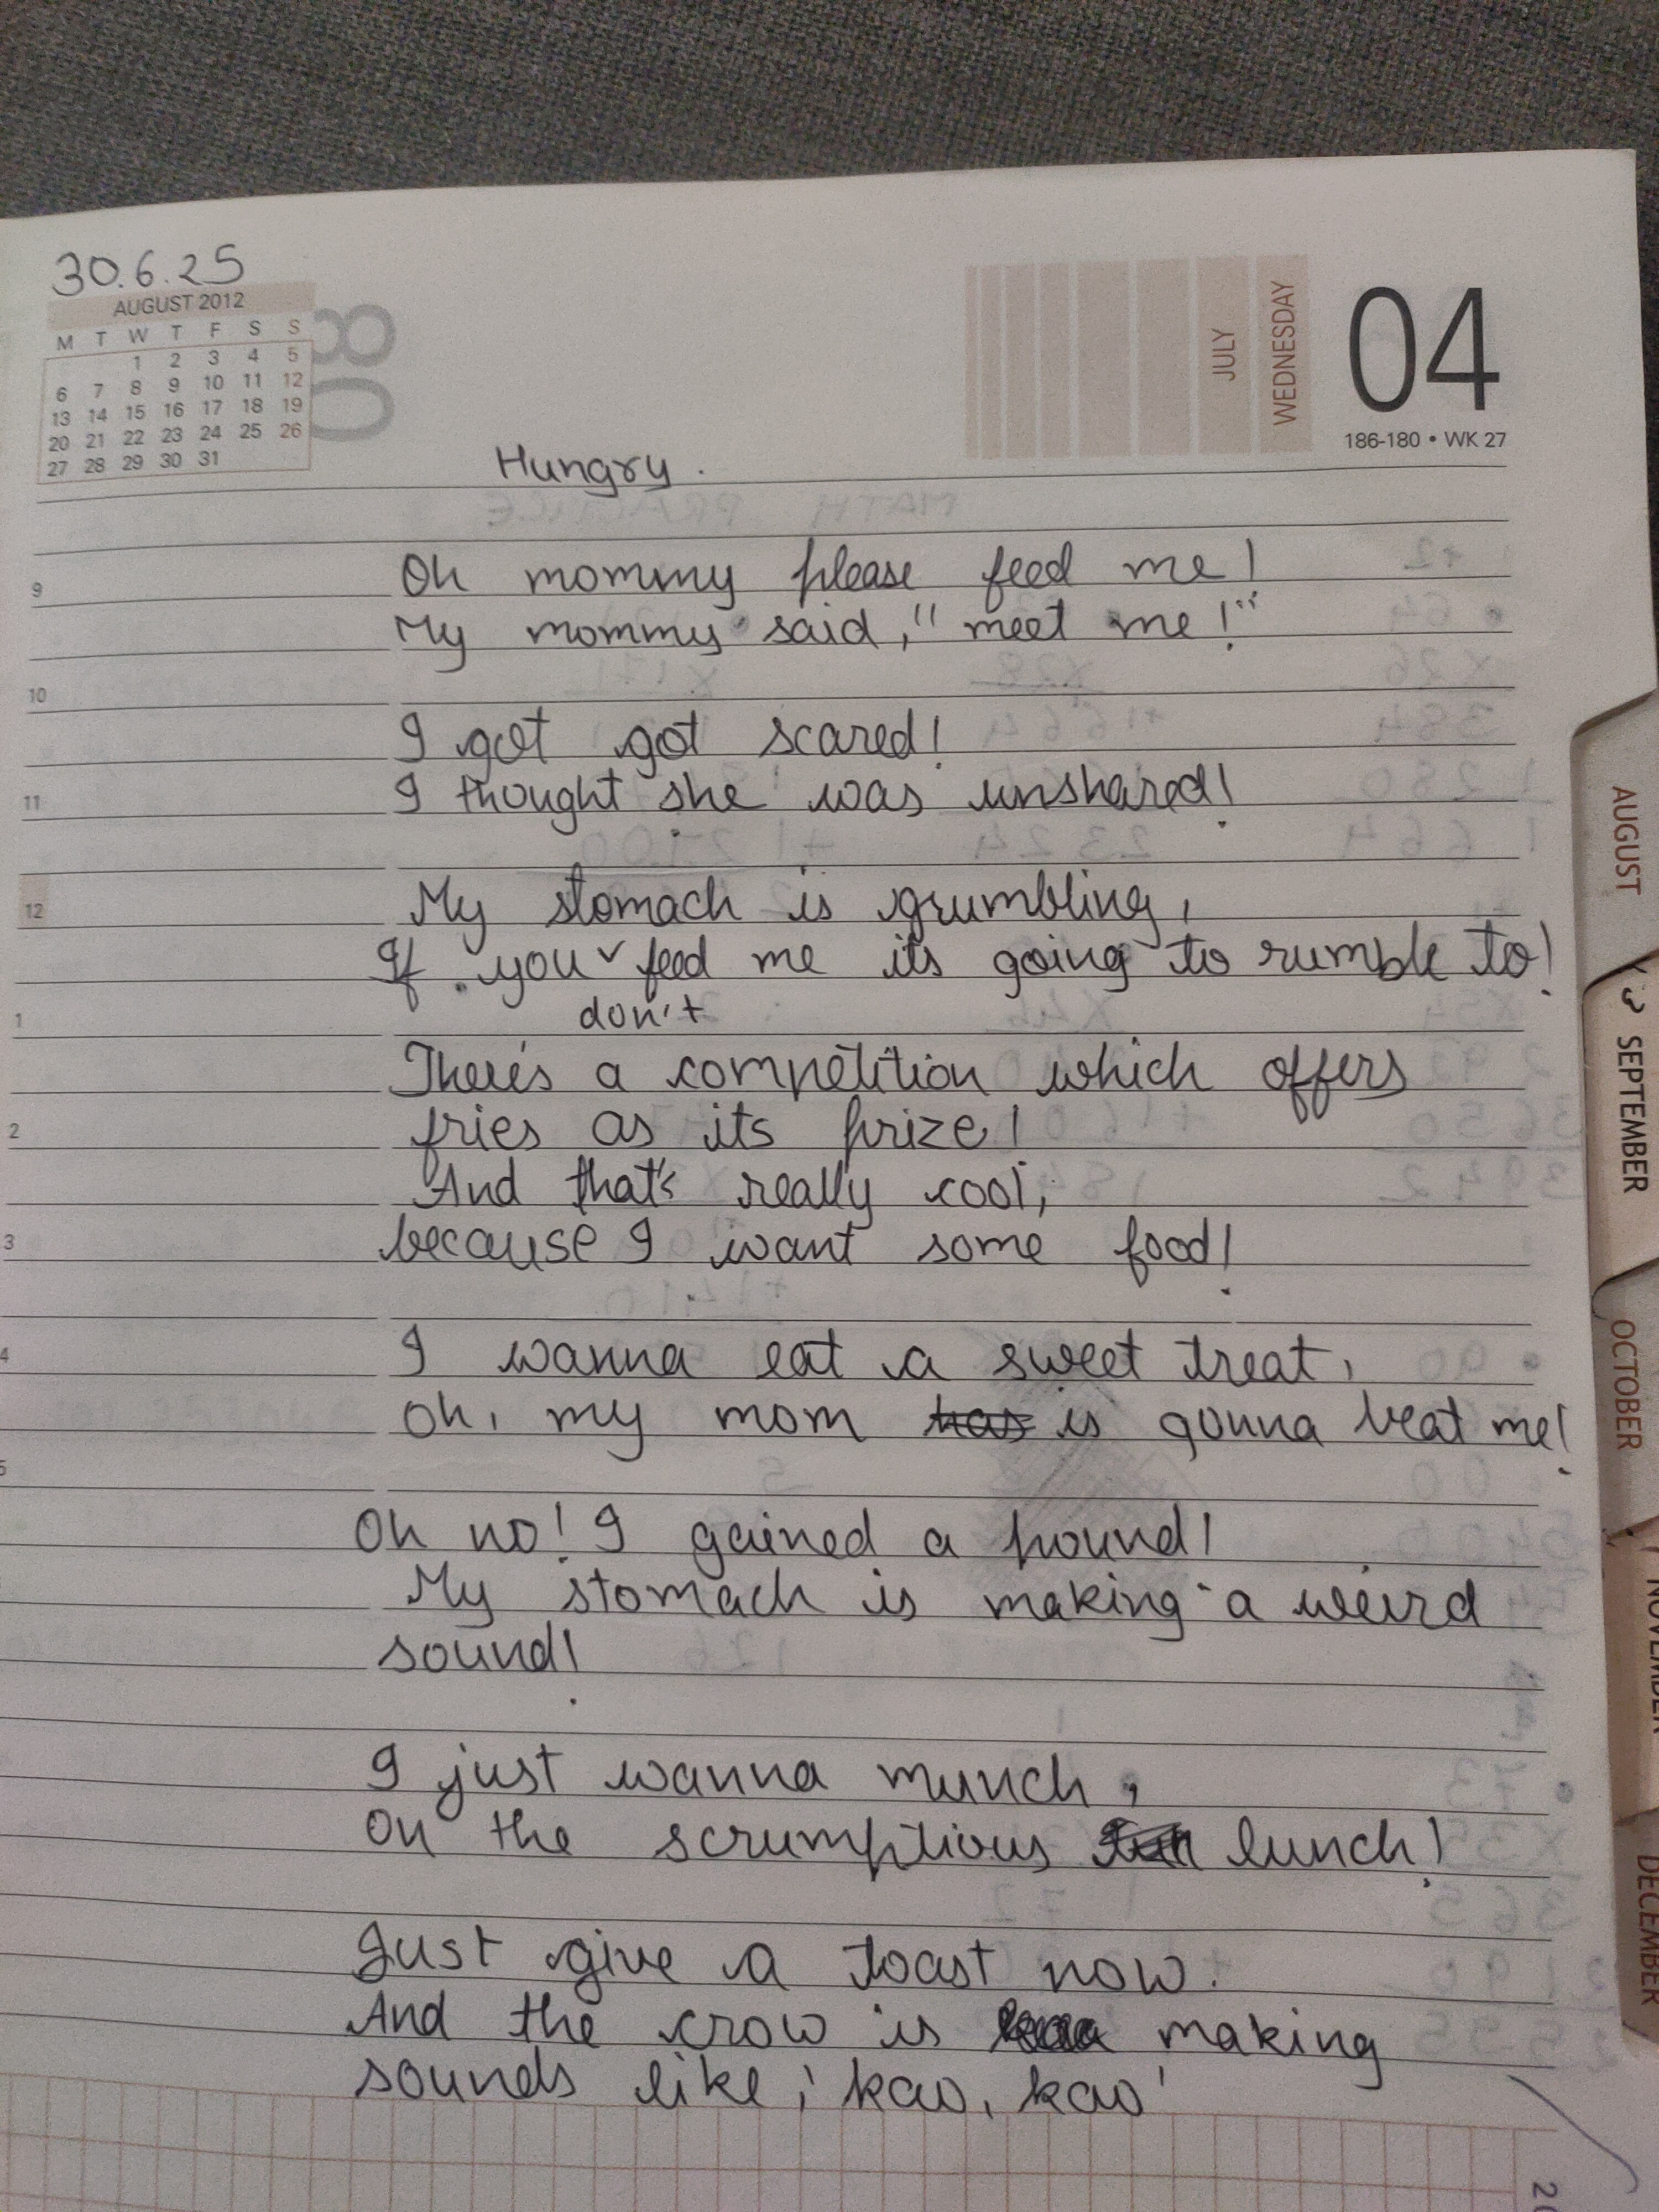 30.6.25
AUGUST 2012
M T W T F S S
1 2 3 4 5
6 7 8 9 10 11 12
13 14 15 16 17 18 19
20 21 22 23 24 25 26
27 28 29 30 31
08
JULY
WEDNESDAY
04
186-180 • WK 27
Hungry.
9
Oh mommy please feed me!
My mommy said, "meet me!"
10
I got got scared!
11 I thought she was unshared!
12 My stomach is grumbling,
If you feed me its going to rumble to!
1 don't
There's a competition which offers
2 fries as its prize!
And that's really cool,
3 because I want some food!
4 I wanna eat a sweet treat,
Oh, my mom has is gonna beat me!
5
Oh no! I gained a pound!
My stomach is making a weird
sound!
I just wanna munch,
On the scrumptious lunch!
Just give a toast now.
And the crow is making
sounds like, 'kaw, kaw'
AUGUST
SEPTEMBER
OCTOBER
NOVEMBER
DECEMBER